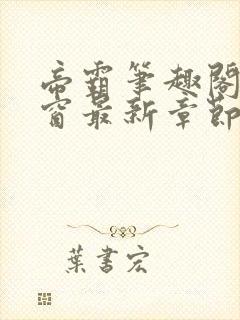 帝霸筆趣閣
窗最新章節
葉書宏